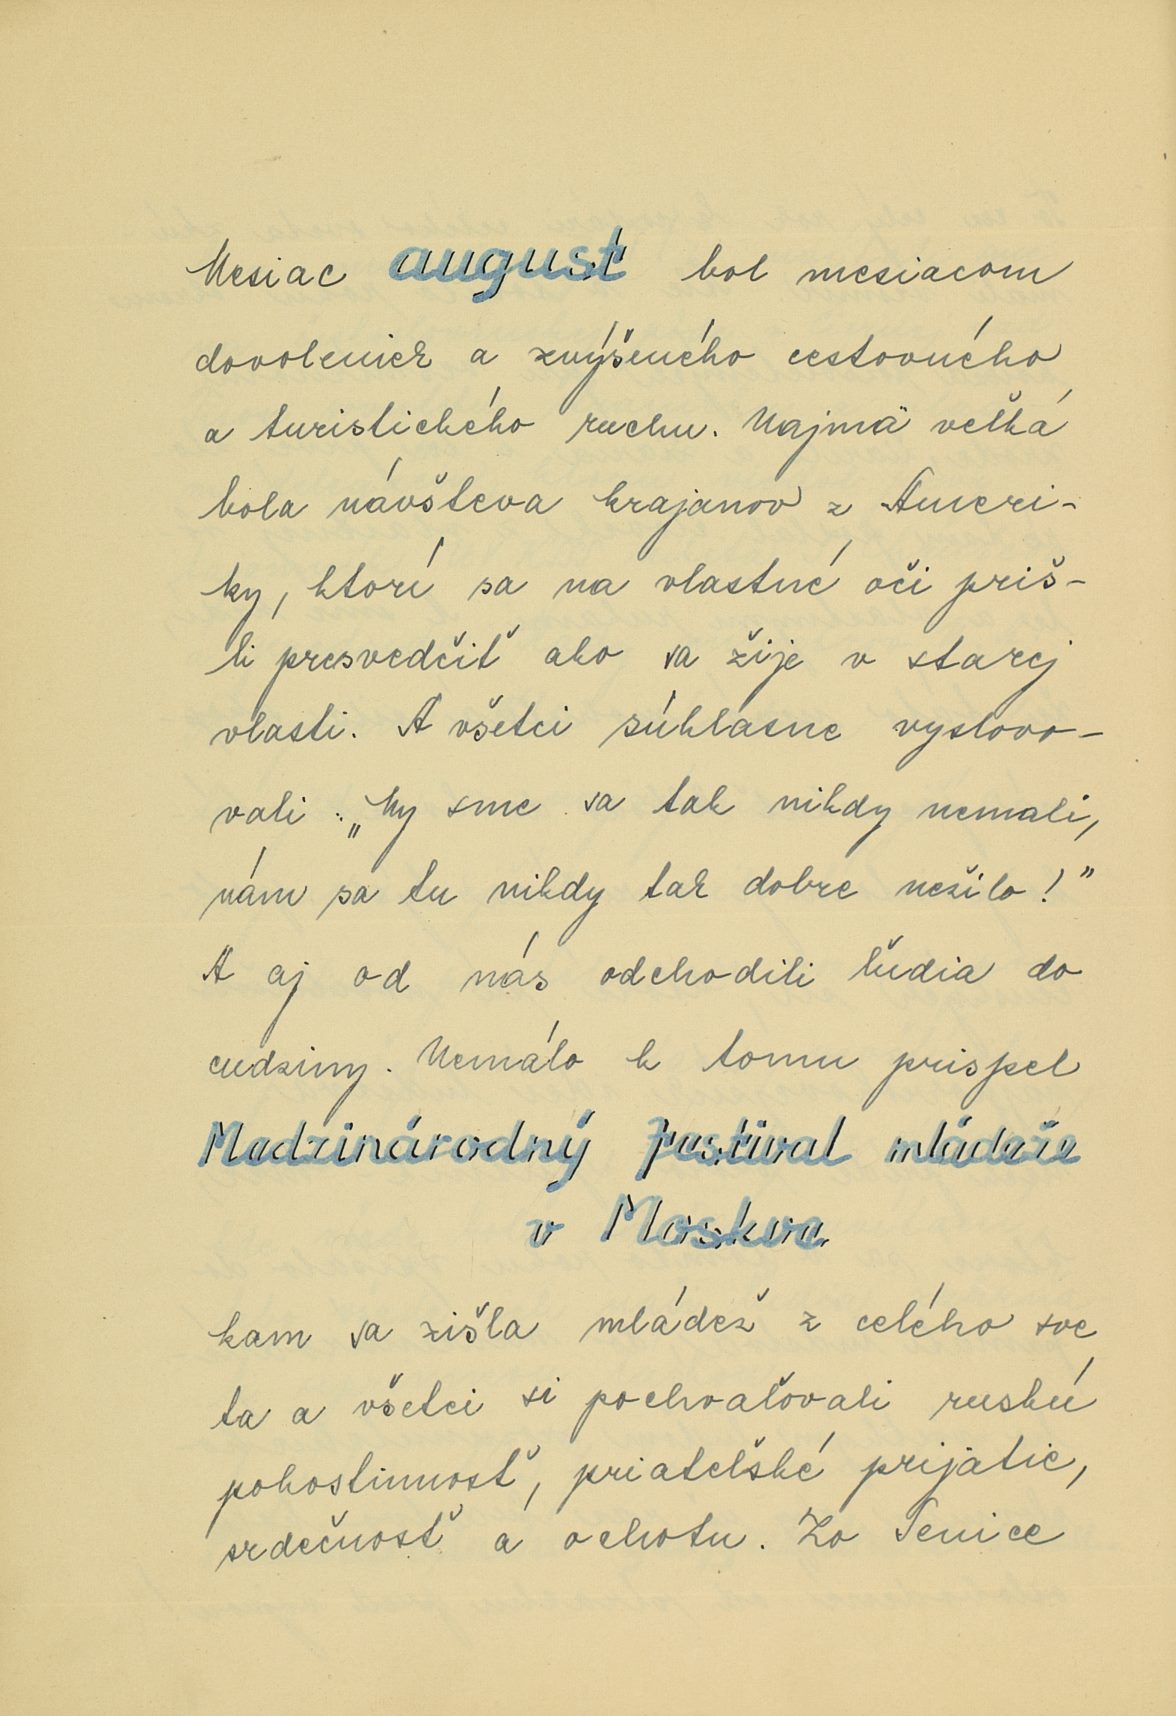 Mesiac august bol mesiacom
dovoleniek a zvýšeného cestovného
a turistického ruchu. Najmä veľká
bola návšteva krajanov z Ameri-
ky, ktorí sa na vlastné oči priš-
li presvedčiť ako sa žije v starej
vlasti. A všetci súhlasne vyslovo-
vali: „My sme sa tak nikdy nemali,
nám sa tu nikdy tak dobre nežilo!"
A aj od nás odchodili ľudia do
cudziny. Nemálo k tomu prispel
Medzinárodný festival mládeže
v Moskve
kam sa zišla mládež z celého sve
ta a všetci si pochvaľovali ruskú
pohostinnosť, priateľské prijatie,
srdečnosť a ochotu. Zo Senice